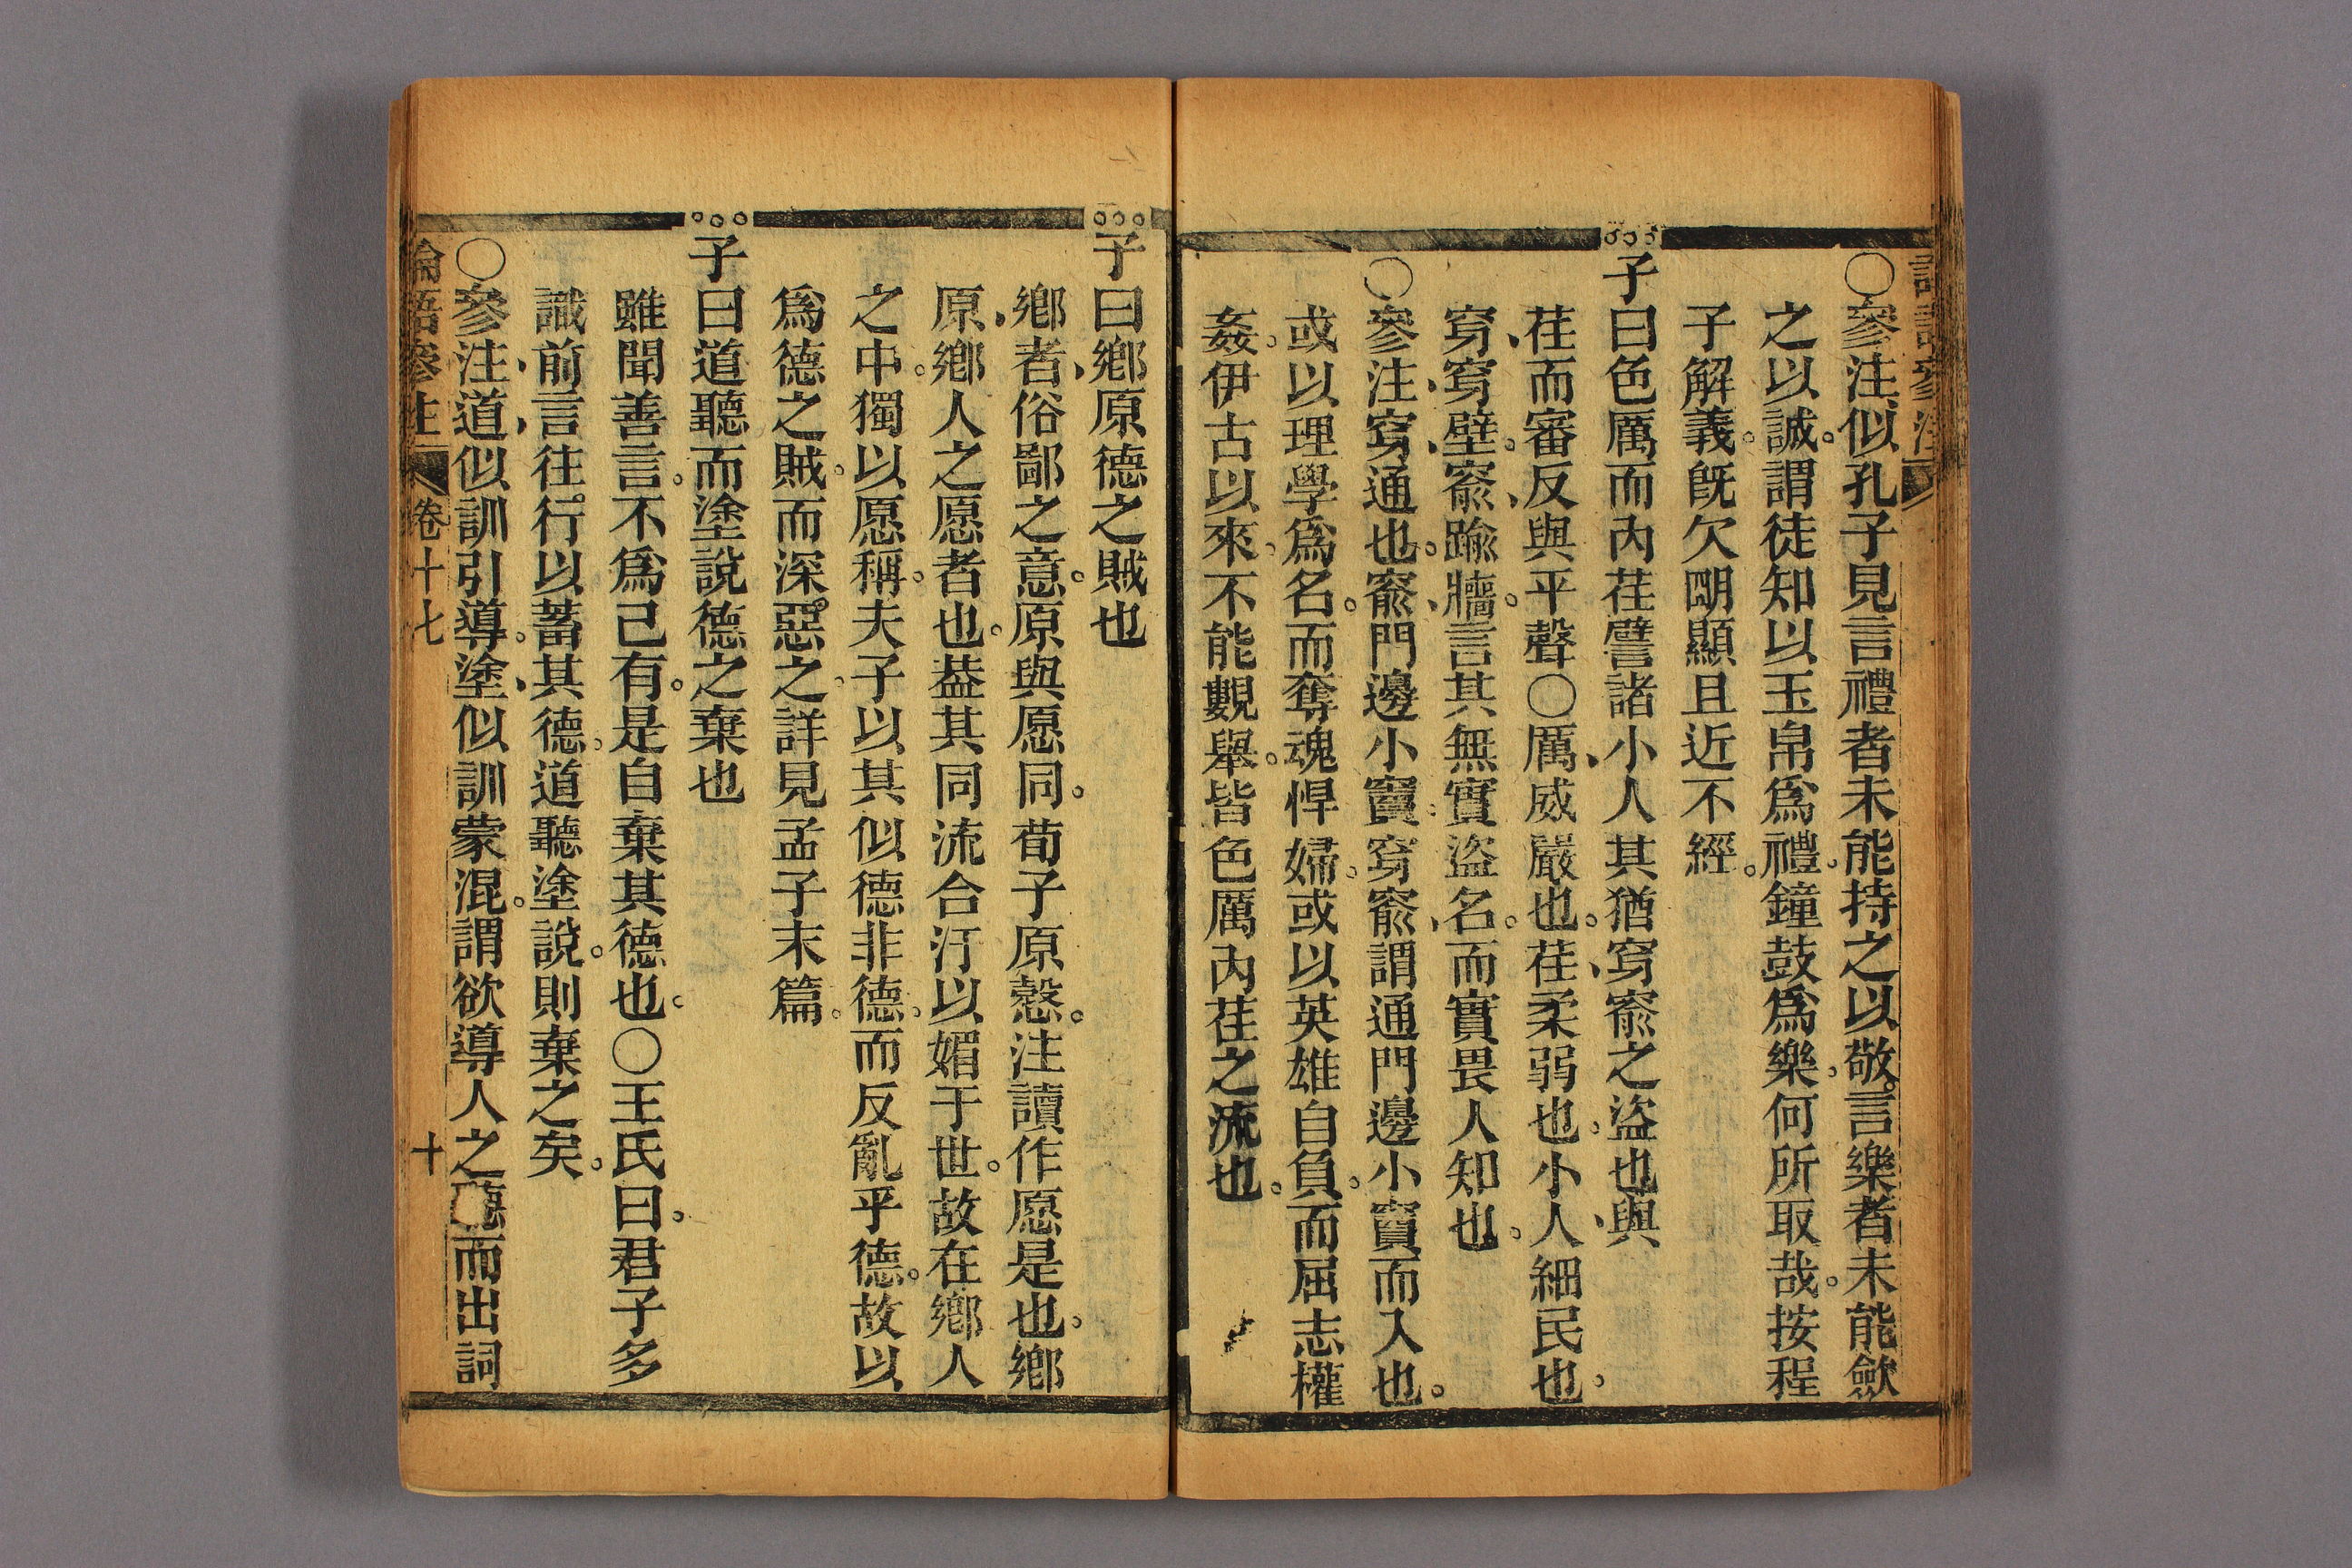 ○參注、似孔子見言禮者未能持之以敬。言樂者未能歛
之以誠。謂徒知以玉帛爲禮。鐘鼓爲樂。何所取哉。按程
子解義。旣欠明顯且近不經。
子曰色厲而內荏譬諸小人其猶穿窬之盜也與
荏而審反與平聲○厲、威嚴也。荏、柔弱也。小人、細民也。
穿、穿壁。窬、踰牆。言其無實盜名。而實畏人知也。
○參注、穿、通也。窬、門邊小竇。穿窬、謂通門邊小竇而入也。
或以理學爲名。而奪魂悍婦。或以英雄自負。而屈志權
姦。伊古以來。不能覼舉。皆色厲內荏之流也。
子曰鄉原德之賊也
鄉者、俗鄙之意。原與愿同。荀子原愨。注讀作愿是也。鄉
原、鄉人之愿者也。葢其同流合汙以媚于世。故在鄉人
之中。獨以愿稱。夫子以其似德非德。而反亂乎德。故以
爲德之賊。而深惡之。詳見孟子末篇。
子曰道聽而塗說德之棄也
雖聞善言。不爲己有。是自棄其德也。○王氏曰。君子多
識前言往行。以蓄其德。道聽塗說。則棄之矣。
○參注、道、似訓引導。塗、似訓蒙混。謂欲導人之聽而出詞
論語參注 卷十七 十